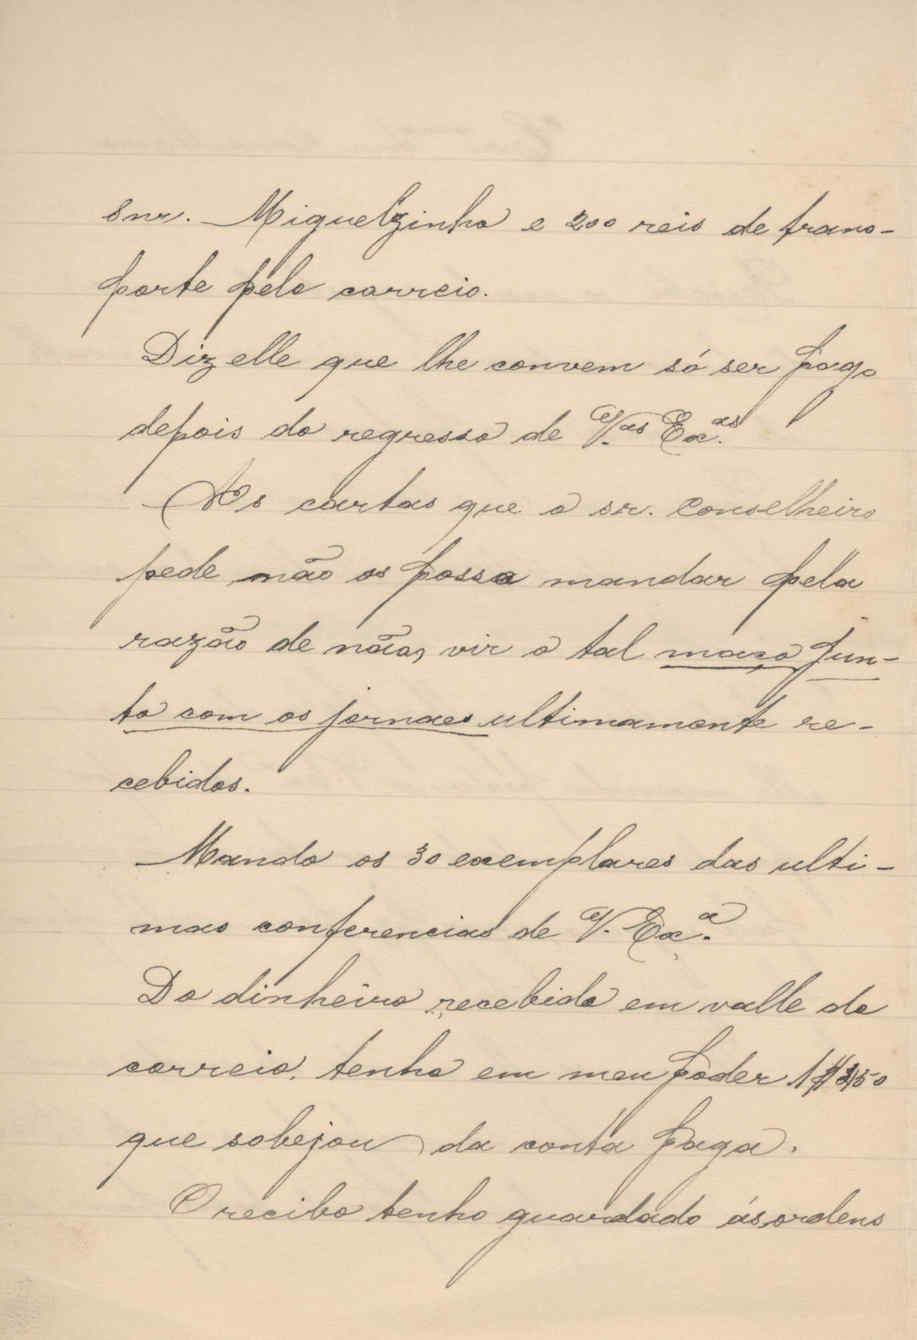 Snr. Miguelzinho e 200 reis de trans-
porte pelo correio.
Diz elle que lhe convem só ser pago
depois do regresso de V.as Ex.as
As cartas que o sr. Conselheiro
pede não os posso mandar pela
razão de não, vir o tal maço jun-
to com os jornaes ultimamente re-
cebidos.
Mando os 30 exemplares das ulti-
mas conferencias de V. Ex.a
Do dinheiro recebido em valle do
correio, tenho em meu poder
que sobejou da conta paga.
O recibo tenho guardado ás ordens